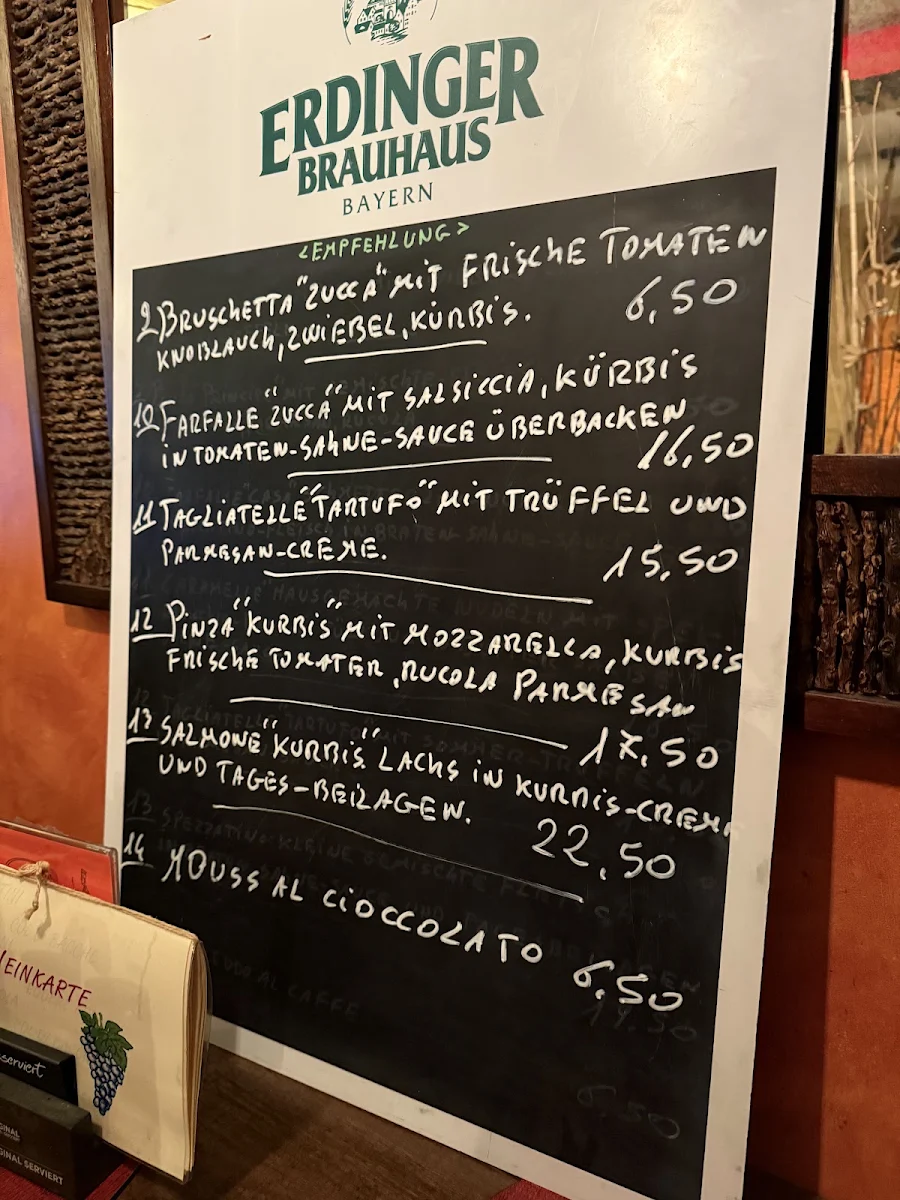 ERDINGER
BRAUHAUS
BAYERN
<EMPFEHLUNG>
9 BRUSCHETTA "ZUCCA" MIT FRISCHE TOMATEN
KNOBLAUCH, ZWIEBEL, KÜRBIS. 6,50
10 FARFALLE "ZUCCA" MIT SALSICCIA, KÜRBIS
IN TOMATEN-SAHNE-SAUCE ÜBERBACKEN
16,50
11 TAGLIATELLE "TARTUFO" MIT TRÜFFEL UND
PARMESAN-CREME. 15,50
12 PINZA "KURBIS" MIT MOZZARELLA, KURBIS
FRISCHE TOMATEN, RUCOLA PARMESAN
17,50
13 SALMONE "KURBIS" LACHS IN KURBIS-CREME
UND TAGES-BEILAGEN. 22,50
14 MOUSS AL CIOCCOLATO 6,50
EINKARTE
serviert
GINAL SERVIERT